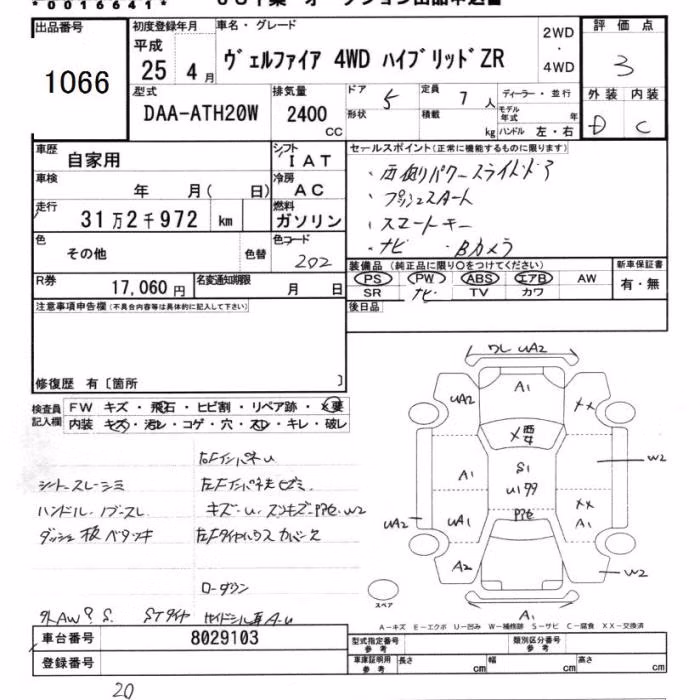 *0016641*
出品番号
1066
初度登録年月
平成
25 4 月
車名・グレード
ヴェルファイア 4WD ハイブリッドZR
2WD
・
4WD
評価点
3
外装 内装
D C
型式
DAA-ATH20W
排気量
2400
CC
ドア 5
形状
定員 7 人
積載 kg
ディーラー・並行
モデル年式 年
ハンドル 左・右
車歴
自家用
シフト
IAT
車検
年 月( 日)
冷房
AC
走行
31万2千972 km
燃料
ガソリン
色
その他
色替
色コード
202
R券
17,060円
名変通知期限
月 日
セールスポイント(正常に機能するものに限ります)
・両側パワースライドドア
・プッシュスタート
・スマートキー
・ナビ ・Bカメラ
装備品(純正品に限り○をつけてください)
PS PW ABS エアB AW
SR ナビ TV カワ
新車保証書
有・無
後日品
注意事項申告欄(不具合内容等は具体的に記入して下さい)
修復歴 有〔箇所 〕
検査員
記入欄
FW キズ・飛石・ヒビ割・リペア跡・×要
内装 キズ・汚レ・コゲ・穴・スレ・キレ・破レ
シートスレ・シミ
ハンドル・ノブスレ
ローダウン
外AW
STタイヤ
ワレ UA2
A1
UA2
XX
×要
A1
S1
W2
UA1
XX
A1
UA2
A2
W2
A1
スペア
A-キズ E-エクボ U-凹み W-補修跡 S-サビ C-腐食 XX-交換済
車台番号
8029103
登録番号
型式指定番号
参考
類別区分番号
参考
車庫証明用
参考
長さ cm
幅 cm
高さ cm
20